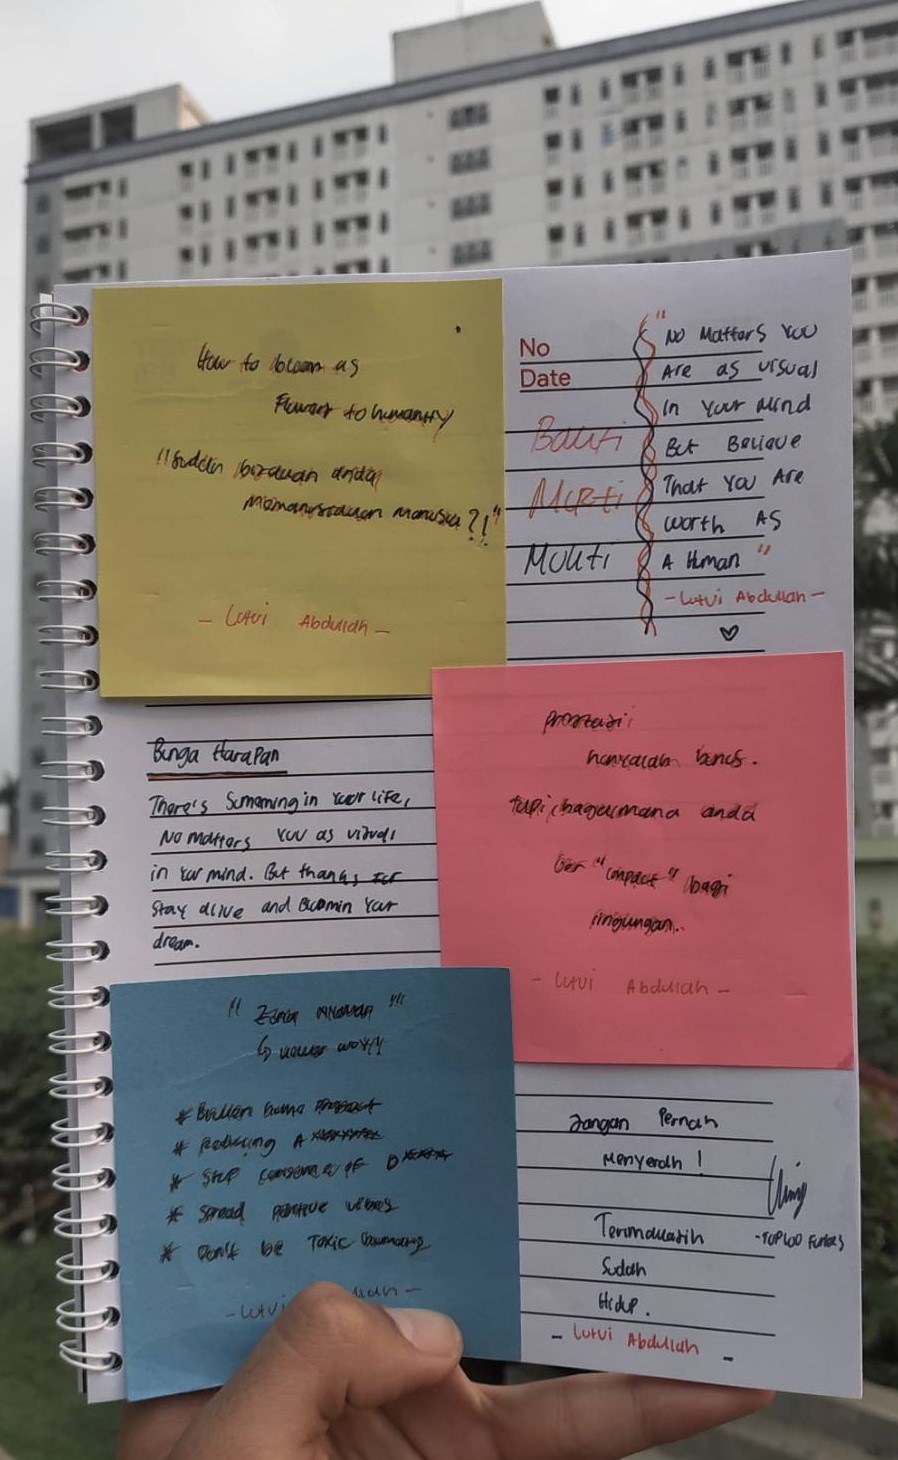 How to bloom as
Flower to humanity
"Sudah bisakah anda
memanusiakan manusia ?!"
- Lutvi Abdullah -
No
Date
Bakti
Murti
Mukti
"No Matters You
Are as visual
In Your Mind
But Believe
That You Are
worth As
A Human"
- Lutvi Abdullah -
Bunga Harapan
There's Someming in Your Life,
No matters You as visual
in Your mind. But thanks for
Stay alive and Bloomin Your
dream.
prestasi
hanyalah bonus.
tapi, bagaimana anda
ber "impact" bagi
lingkungan..
- Lutvi Abdullah -
"Zona Nyaman"
* Broken home
* Reducing A
* Stop of D
* Spread positive vibes
* Don't be Toxic
- Lutvi
Jangan Pernah
Menyerah !
Terimakasih
Sudah
Hidup.
- Lutvi Abdullah -